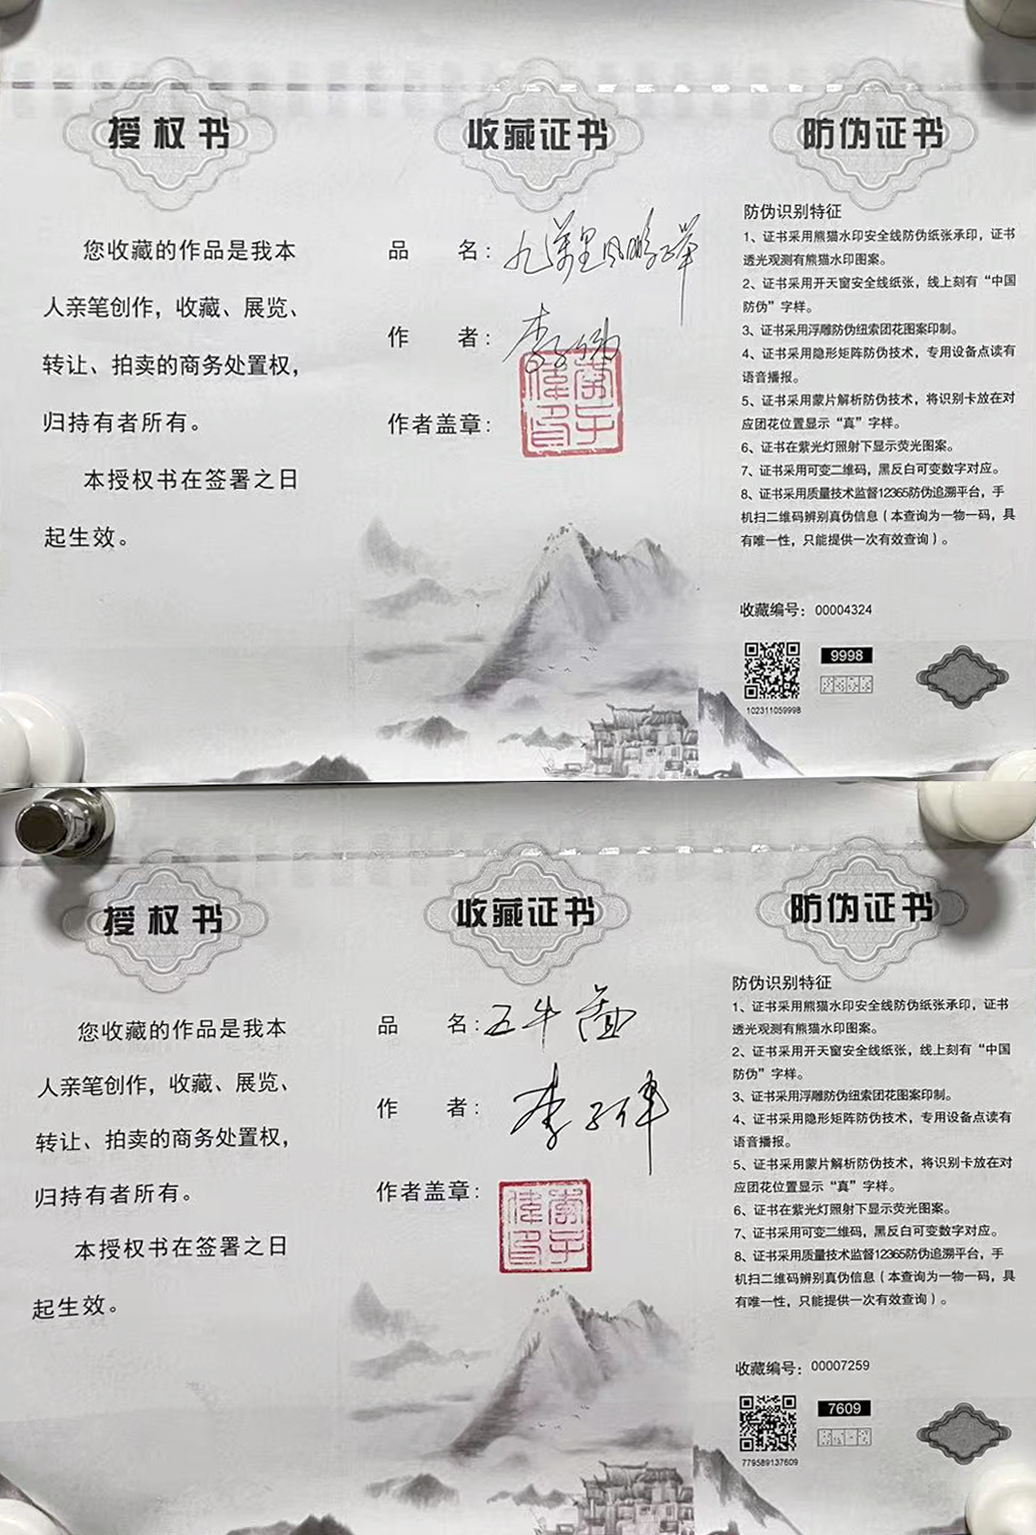 授权书
您收藏的作品是我本
人亲笔创作，收藏、展览、
转让、拍卖的商务处置权，
归持有者所有。
本授权书在签署之日
起生效。
收藏证书
品 名：九万里风鹏正举
作 者：李子伟
作者盖章：
防伪证书
防伪识别特征
1、证书采用熊猫水印安全线防伪纸张承印，证书
透光观测有熊猫水印图案。
2、证书采用开天窗安全线纸张，线上刻有“中国
防伪”字样。
3、证书采用浮雕防伪纽索团花图案印制。
4、证书采用隐形矩阵防伪技术，专用设备点读有
语音播报。
5、证书采用蒙片解析防伪技术，将识别卡放在对
应团花位置显示“真”字样。
6、证书在紫光灯照射下显示荧光图案。
7、证书采用可变二维码，黑反白可变数字对应。
8、证书采用质量技术监督12365防伪追溯平台，手
机扫二维码辨别真伪信息（本查询为一物一码，具
有唯一性，只能提供一次有效查询）。
收藏编号：00004324
9998
102311059998
授权书
您收藏的作品是我本
人亲笔创作，收藏、展览、
转让、拍卖的商务处置权，
归持有者所有。
本授权书在签署之日
起生效。
收藏证书
品 名：五牛图
作 者：李子伟
作者盖章：
防伪证书
防伪识别特征
1、证书采用熊猫水印安全线防伪纸张承印，证书
透光观测有熊猫水印图案。
2、证书采用开天窗安全线纸张，线上刻有“中国
防伪”字样。
3、证书采用浮雕防伪纽索团花图案印制。
4、证书采用隐形矩阵防伪技术，专用设备点读有
语音播报。
5、证书采用蒙片解析防伪技术，将识别卡放在对
应团花位置显示“真”字样。
6、证书在紫光灯照射下显示荧光图案。
7、证书采用可变二维码，黑反白可变数字对应。
8、证书采用质量技术监督12365防伪追溯平台，手
机扫二维码辨别真伪信息（本查询为一物一码，具
有唯一性，只能提供一次有效查询）。
收藏编号：00007259
7609
779589137609